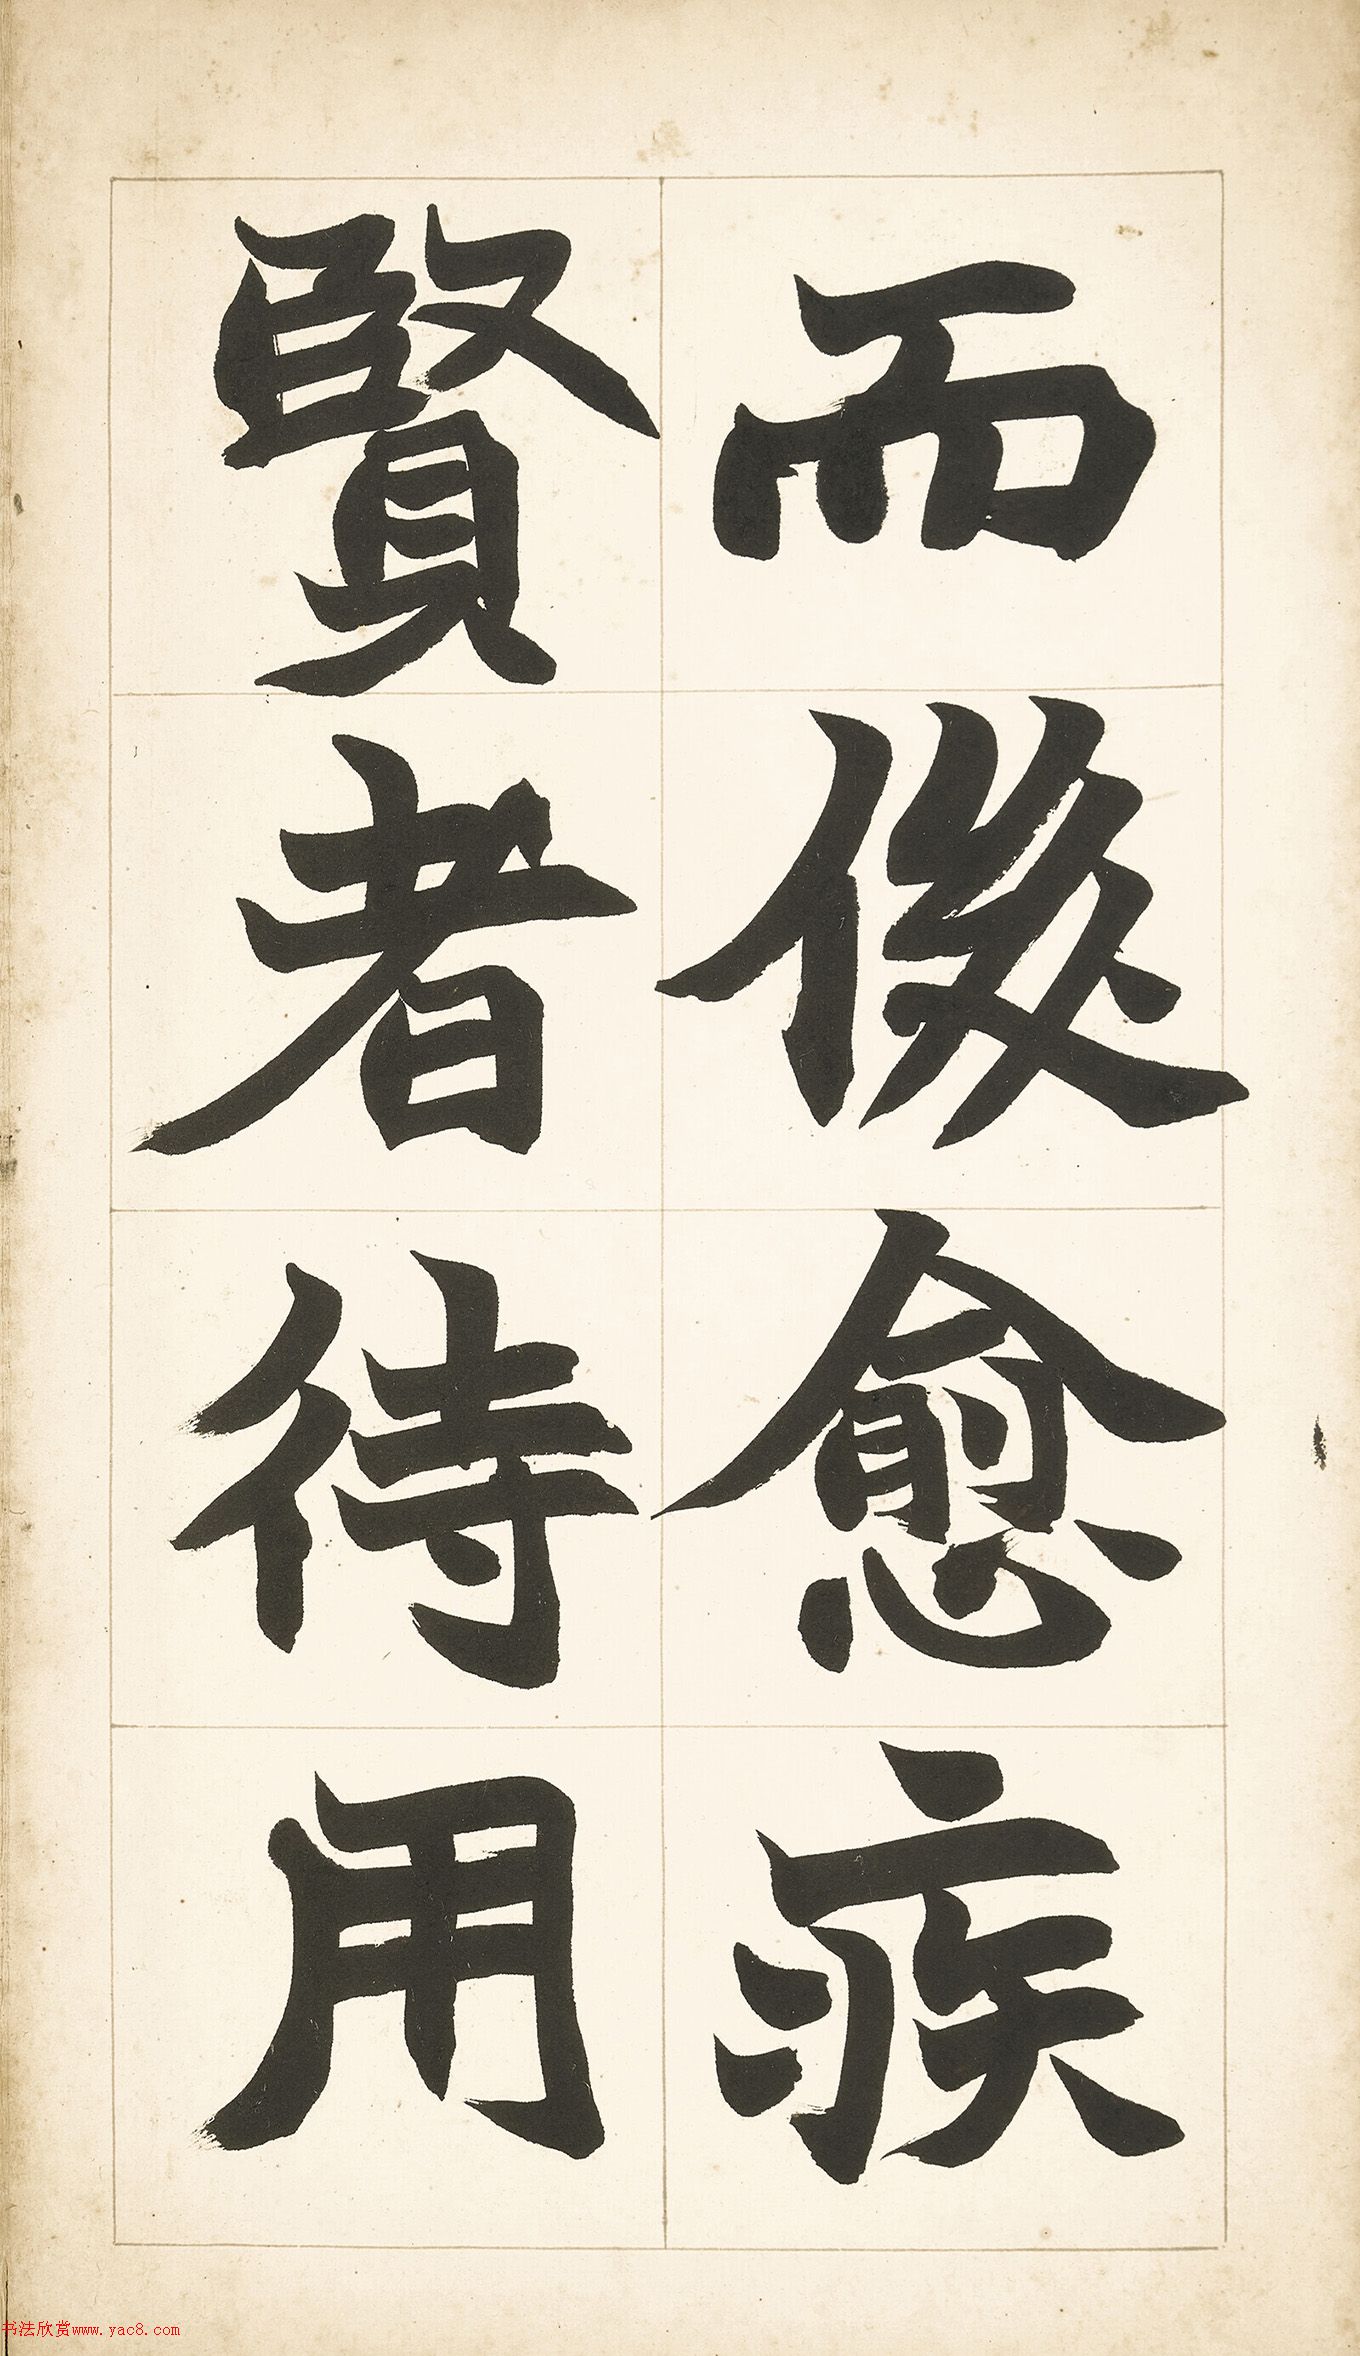 而後愈疾
賢者待用
书法欣赏www.yac8.com